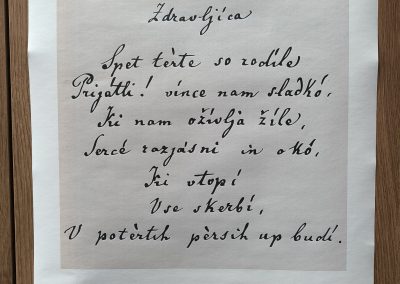 Zdravljica
Spet tèrte so rodíle
Prijátli! vínce nam sladkó,
Ki nam ožívlja žíle,
Sercé razjásni in okó,
Ki vtopí
Vse skerbí,
V potèrtih pèrsih up budí.